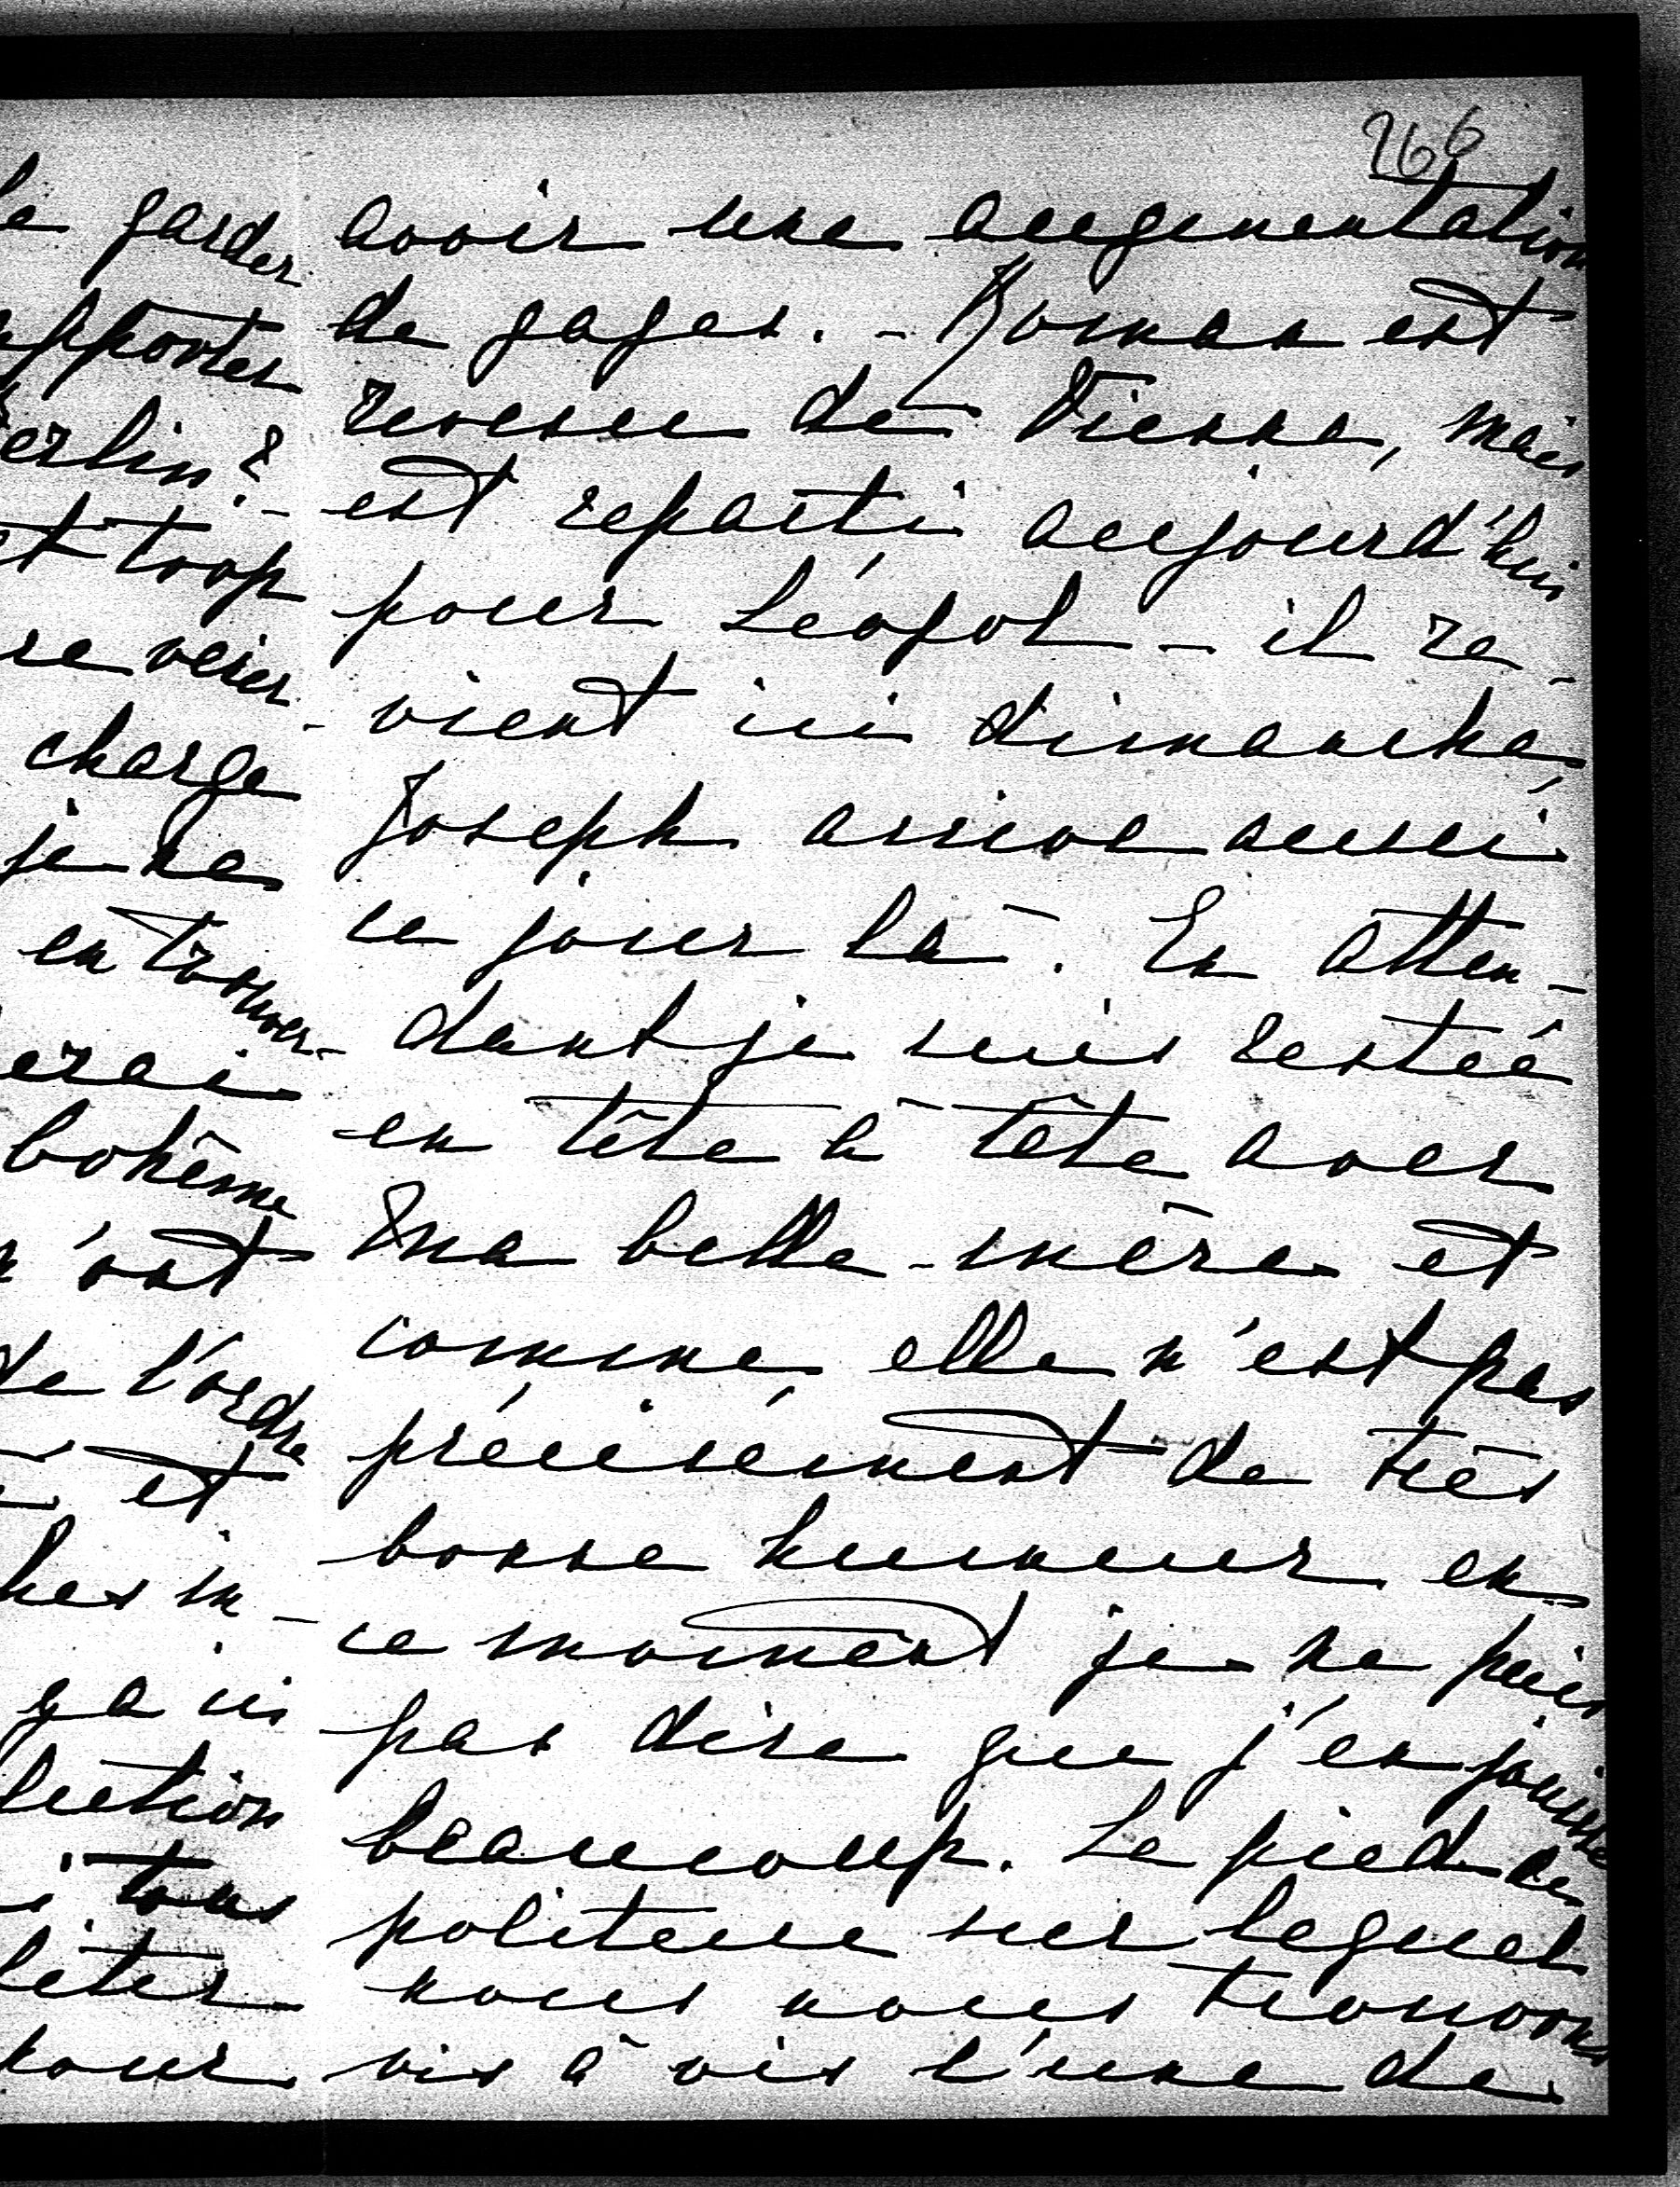 266
avoir une augmentation
de gages. - Roman est
revenu de Vienne, mais
est reparti aujourd'hui
pour Léopol - il re-
vient ici dimanche,
Joseph arrive aussi
ce jour là. En atten-
dant je suis restée
en tête à tête avec
Ma belle-mère et
comme elle n'est pas
précisément de très
bonne humeur en
ce moment je ne puis
pas dire que j'en jouisse
beaucoup. Le pied de
politesse sur lequel
nous nous trouvons
vis à vis l'une de
garder
erlin?
et trop
charge
je ne
en trouver
erai
bohême
n'ont
de l'ordre
et
in-
ça ici
tous
pour